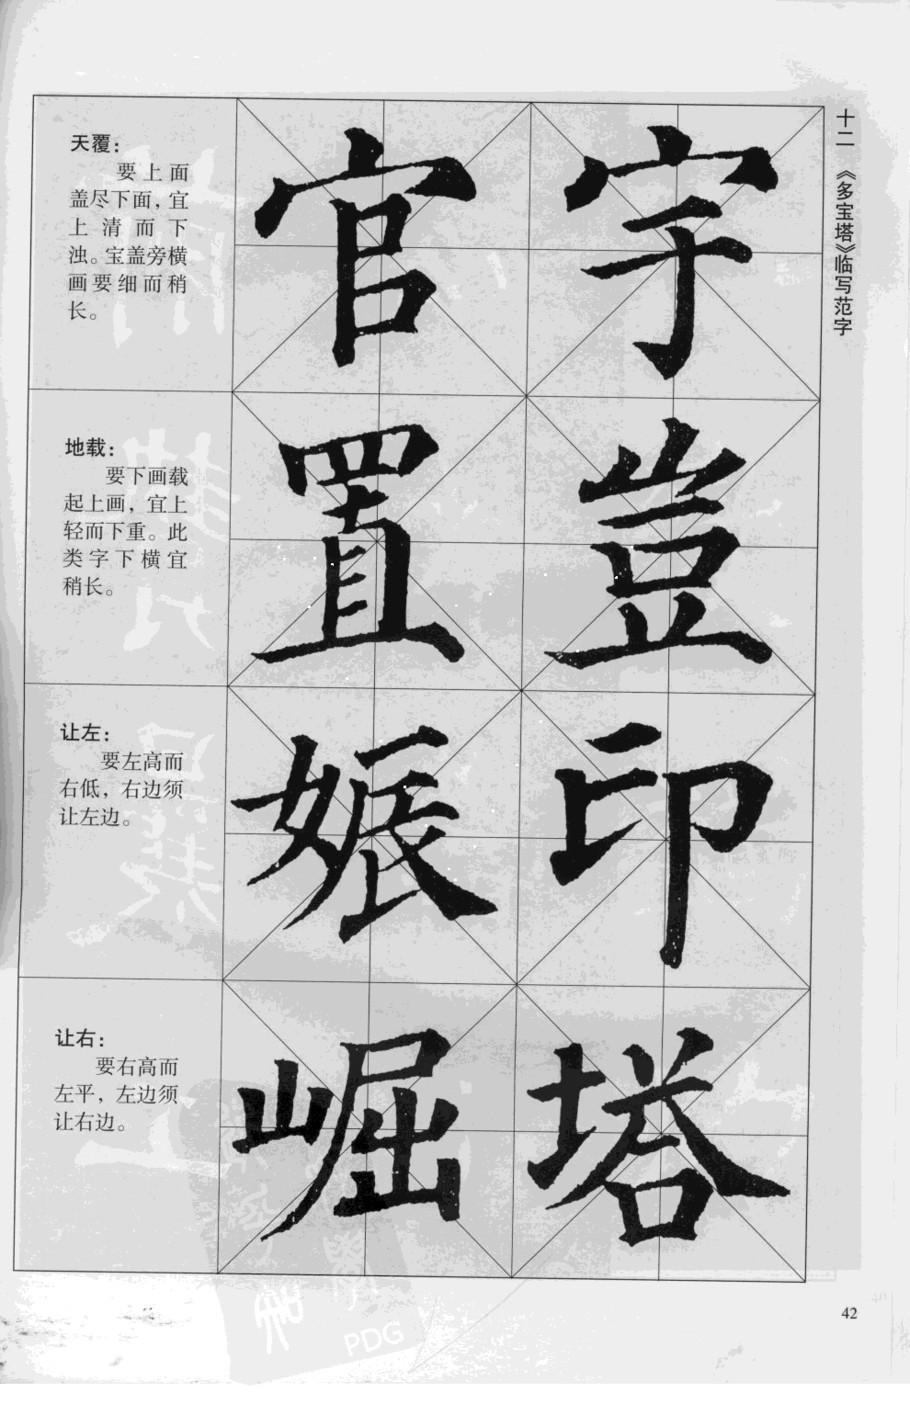 十二 《多宝塔》临写范字
宇
官
天覆：
要上面
盖尽下面，宜
上清而下
浊。宝盖旁横
画要细而稍
长。
豈
置
地载：
要下画载
起上画，宜上
轻而下重。此
类字下横宜
稍长。
印
娠
让左：
要左高而
右低，右边须
让左边。
塔
崛
让右：
要右高而
左平，左边须
让右边。
42
PDG